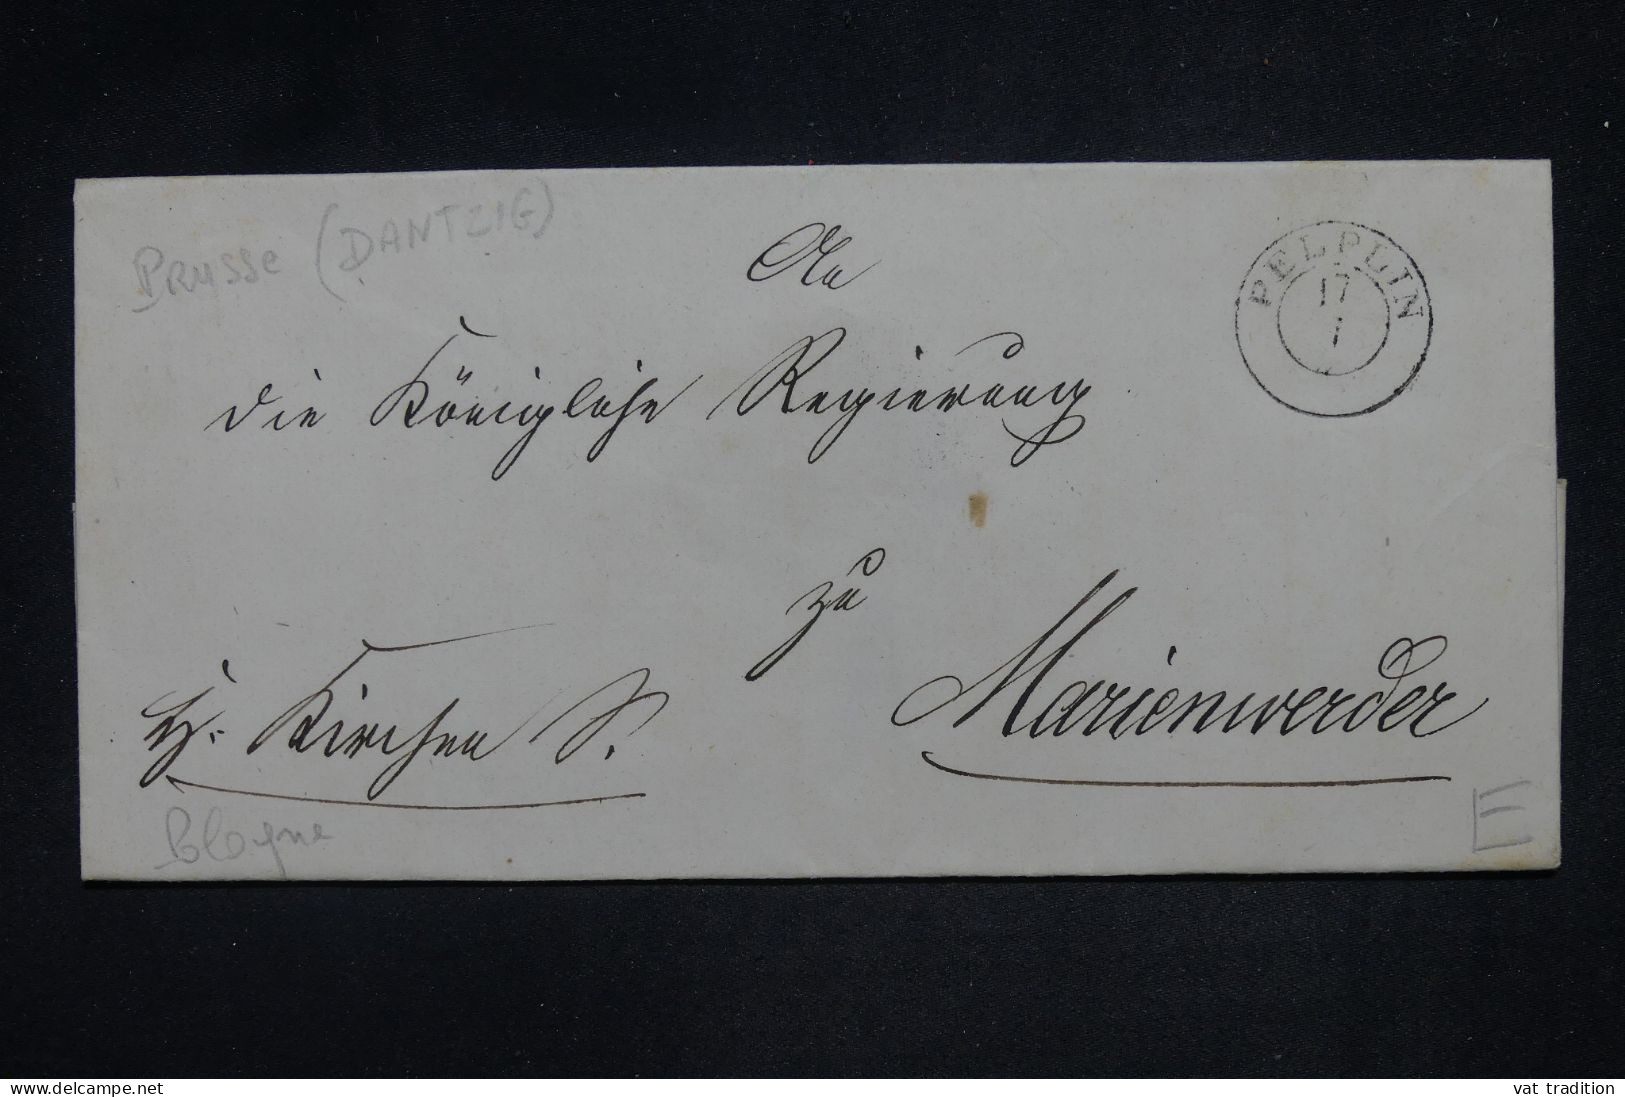 Prusse (DANTZIG)
An
PELPLIN
17
7
die Königliche Regierung
zu
Marienwerder
H. Kirchen S.
Pologne
E
www.delcampe.net
vat tradition